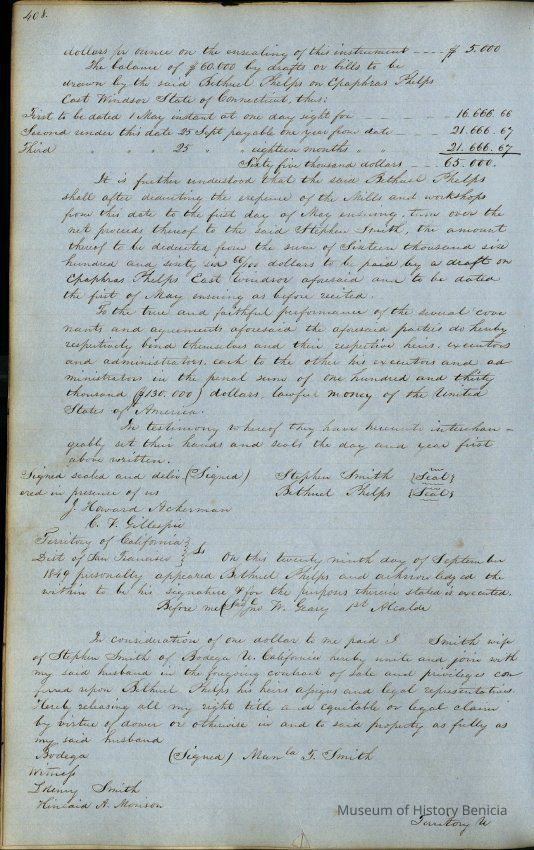 408.
dollars per ounce on the ensealing of this instrument ---- $ 5.000
The balance of $60.000 by drafts or bills to be
drawn by the said Bethuel Phelps on Epaphras Phelps
East Windsor State of Connecticut, thus:
First to be dated 1 May instant at one day sight for --- 16.666.66
Second under this date 25 Sept payable one year from date --- 21.666.67
Third " " " 25 " " eighteen months " --- 21.666.67
Sixty five thousand dollars --- 65.000.
It is further understood that the said Bethuel Phelps
shall after deducting the expense of the Mills and workshops
from this date to the first day of May ensuing, turn over the
net proceeds thereof to the said Stephen Smith, the amount
thereof to be deducted from the sum of Sixteen thousand six
hundred and sixty six 66/100 dollars to be paid by a draft on
Epaphras Phelps East Windsor aforesaid and to be dated
the first of May ensuing as before recited.
To the true and faithful performance of the several cove
nants and agreements aforesaid the aforesaid parties do hereby
respectively bond themselves and their respective heirs, executors
and administrators, each to the other his executors and ad
ministrators in the penal sum of one hundred and thirty
thousand ($130.000) dollars, lawful money of the United
States of America.
In testimony whereof they have hereunto interchan-
geably set their hands and seals the day and year first
above written.
Signed sealed and deliv (Signed) Stephen Smith {Seal}
ered in presence of us Bethuel Phelps {Seal}
J. Howard Ackerman
C. V. Gillespie
Territory of California }
Dist of San Francisco } Ss On this twenty ninth day of September
1849 personally appeared Bethuel Phelps and acknowledged the
within to be his signature & for the purposes therein stated is executed.
Before me (Sgd) Jno W. Geary 1st Alcalde
In consideration of one dollar to me paid I Smith wife
of Stephen Smith of Bodega U. California hereby unite and join with
my said husband in the foregoing contract of sale and privileges con
ferred upon Bethuel Phelps his heirs assigns and legal representatives.
Hereby releasing all my right title and equitable or legal claim
by virtue of dower or otherwise in and to said property as fully as
my said husband
Bodega (Signed) Manla T. Smith
Witness
Henry Smith
A. Monison
Museum of History Benicia
Territory U